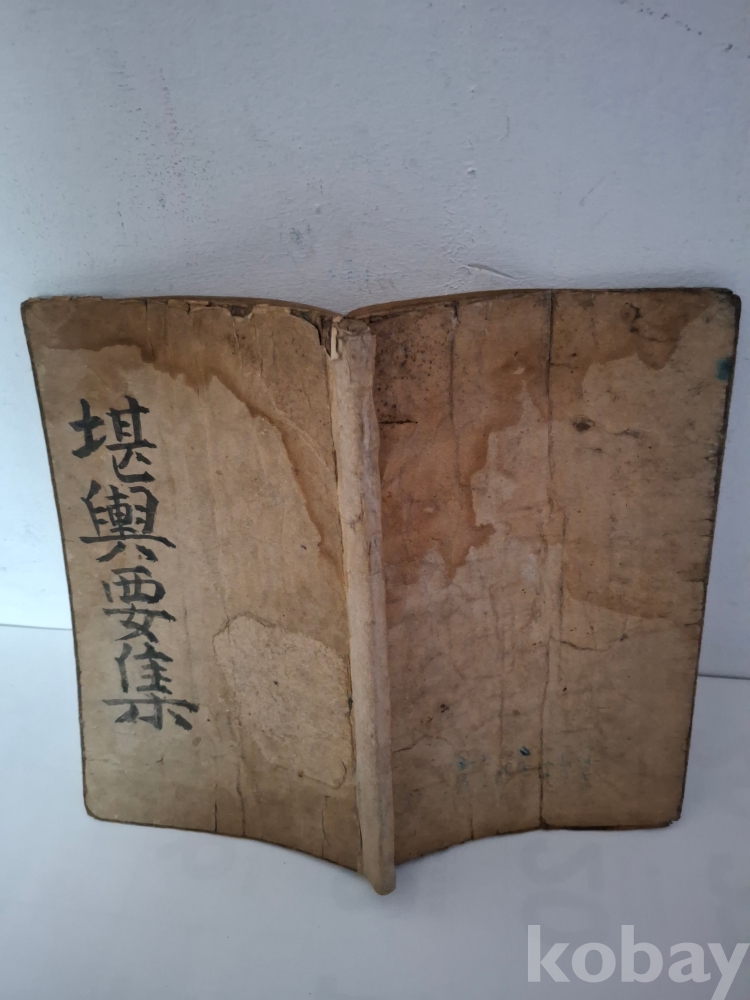 堪輿要集
kobay